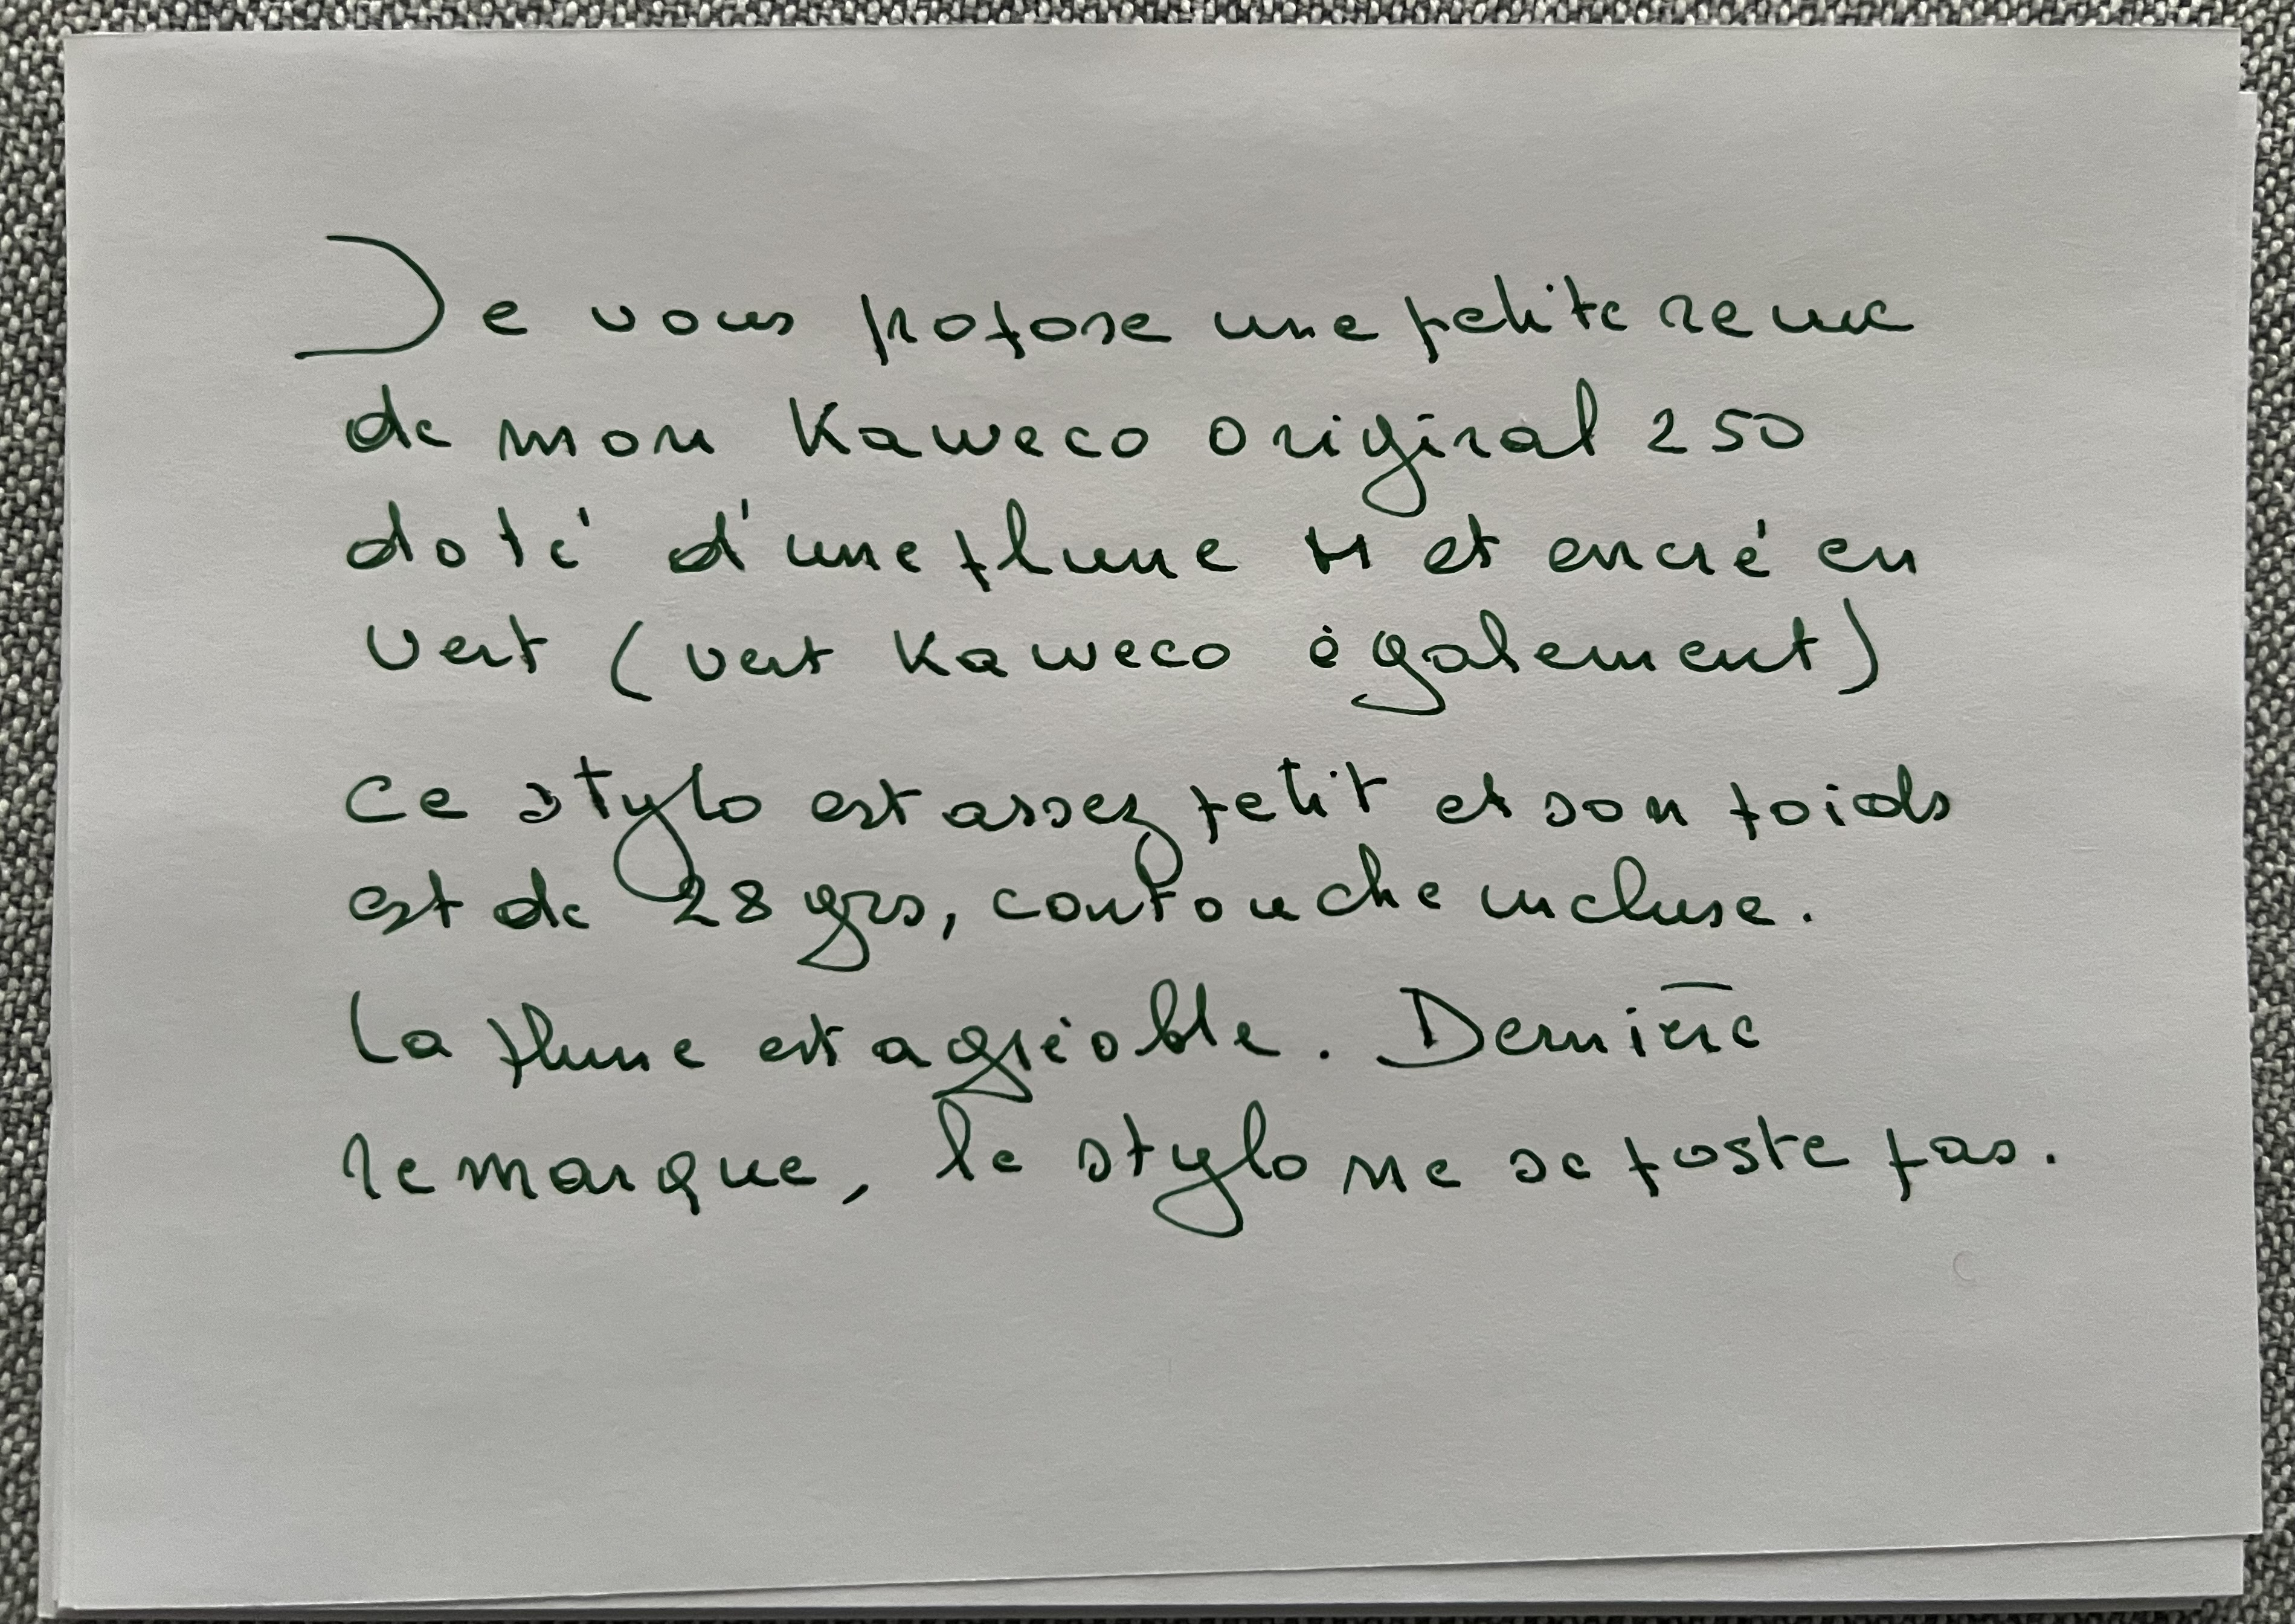 Je vous propose une petite revue
de mon Kaweco original 250
doté d'une plume M et encré en
vert (vert Kaweco également)
Ce stylo est assez petit et son poids
est de 28 grs, contouche incluse.
La plume est agréable. Dernière
remarque, le stylo ne se poste pas.